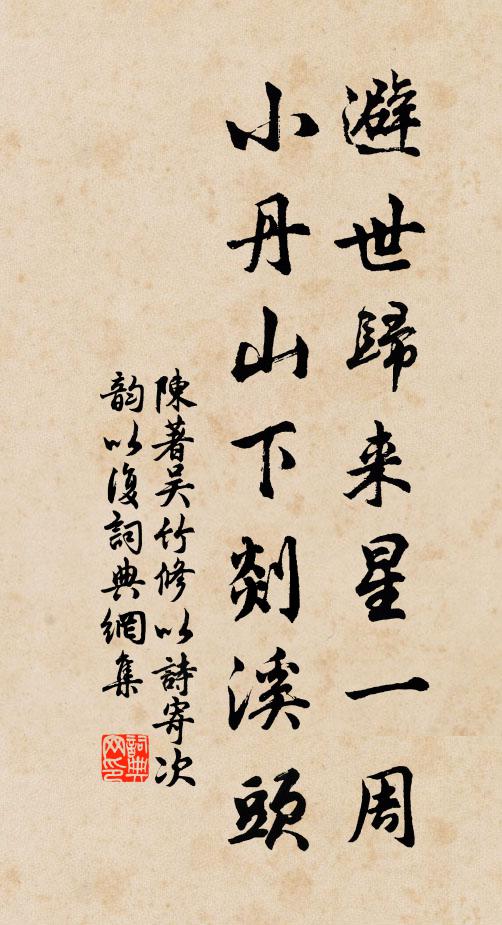 避世歸来星一周
小丹山下剡溪頭
陳著吴竹修以詩寄次
韵以復詞典網集
詞典网印